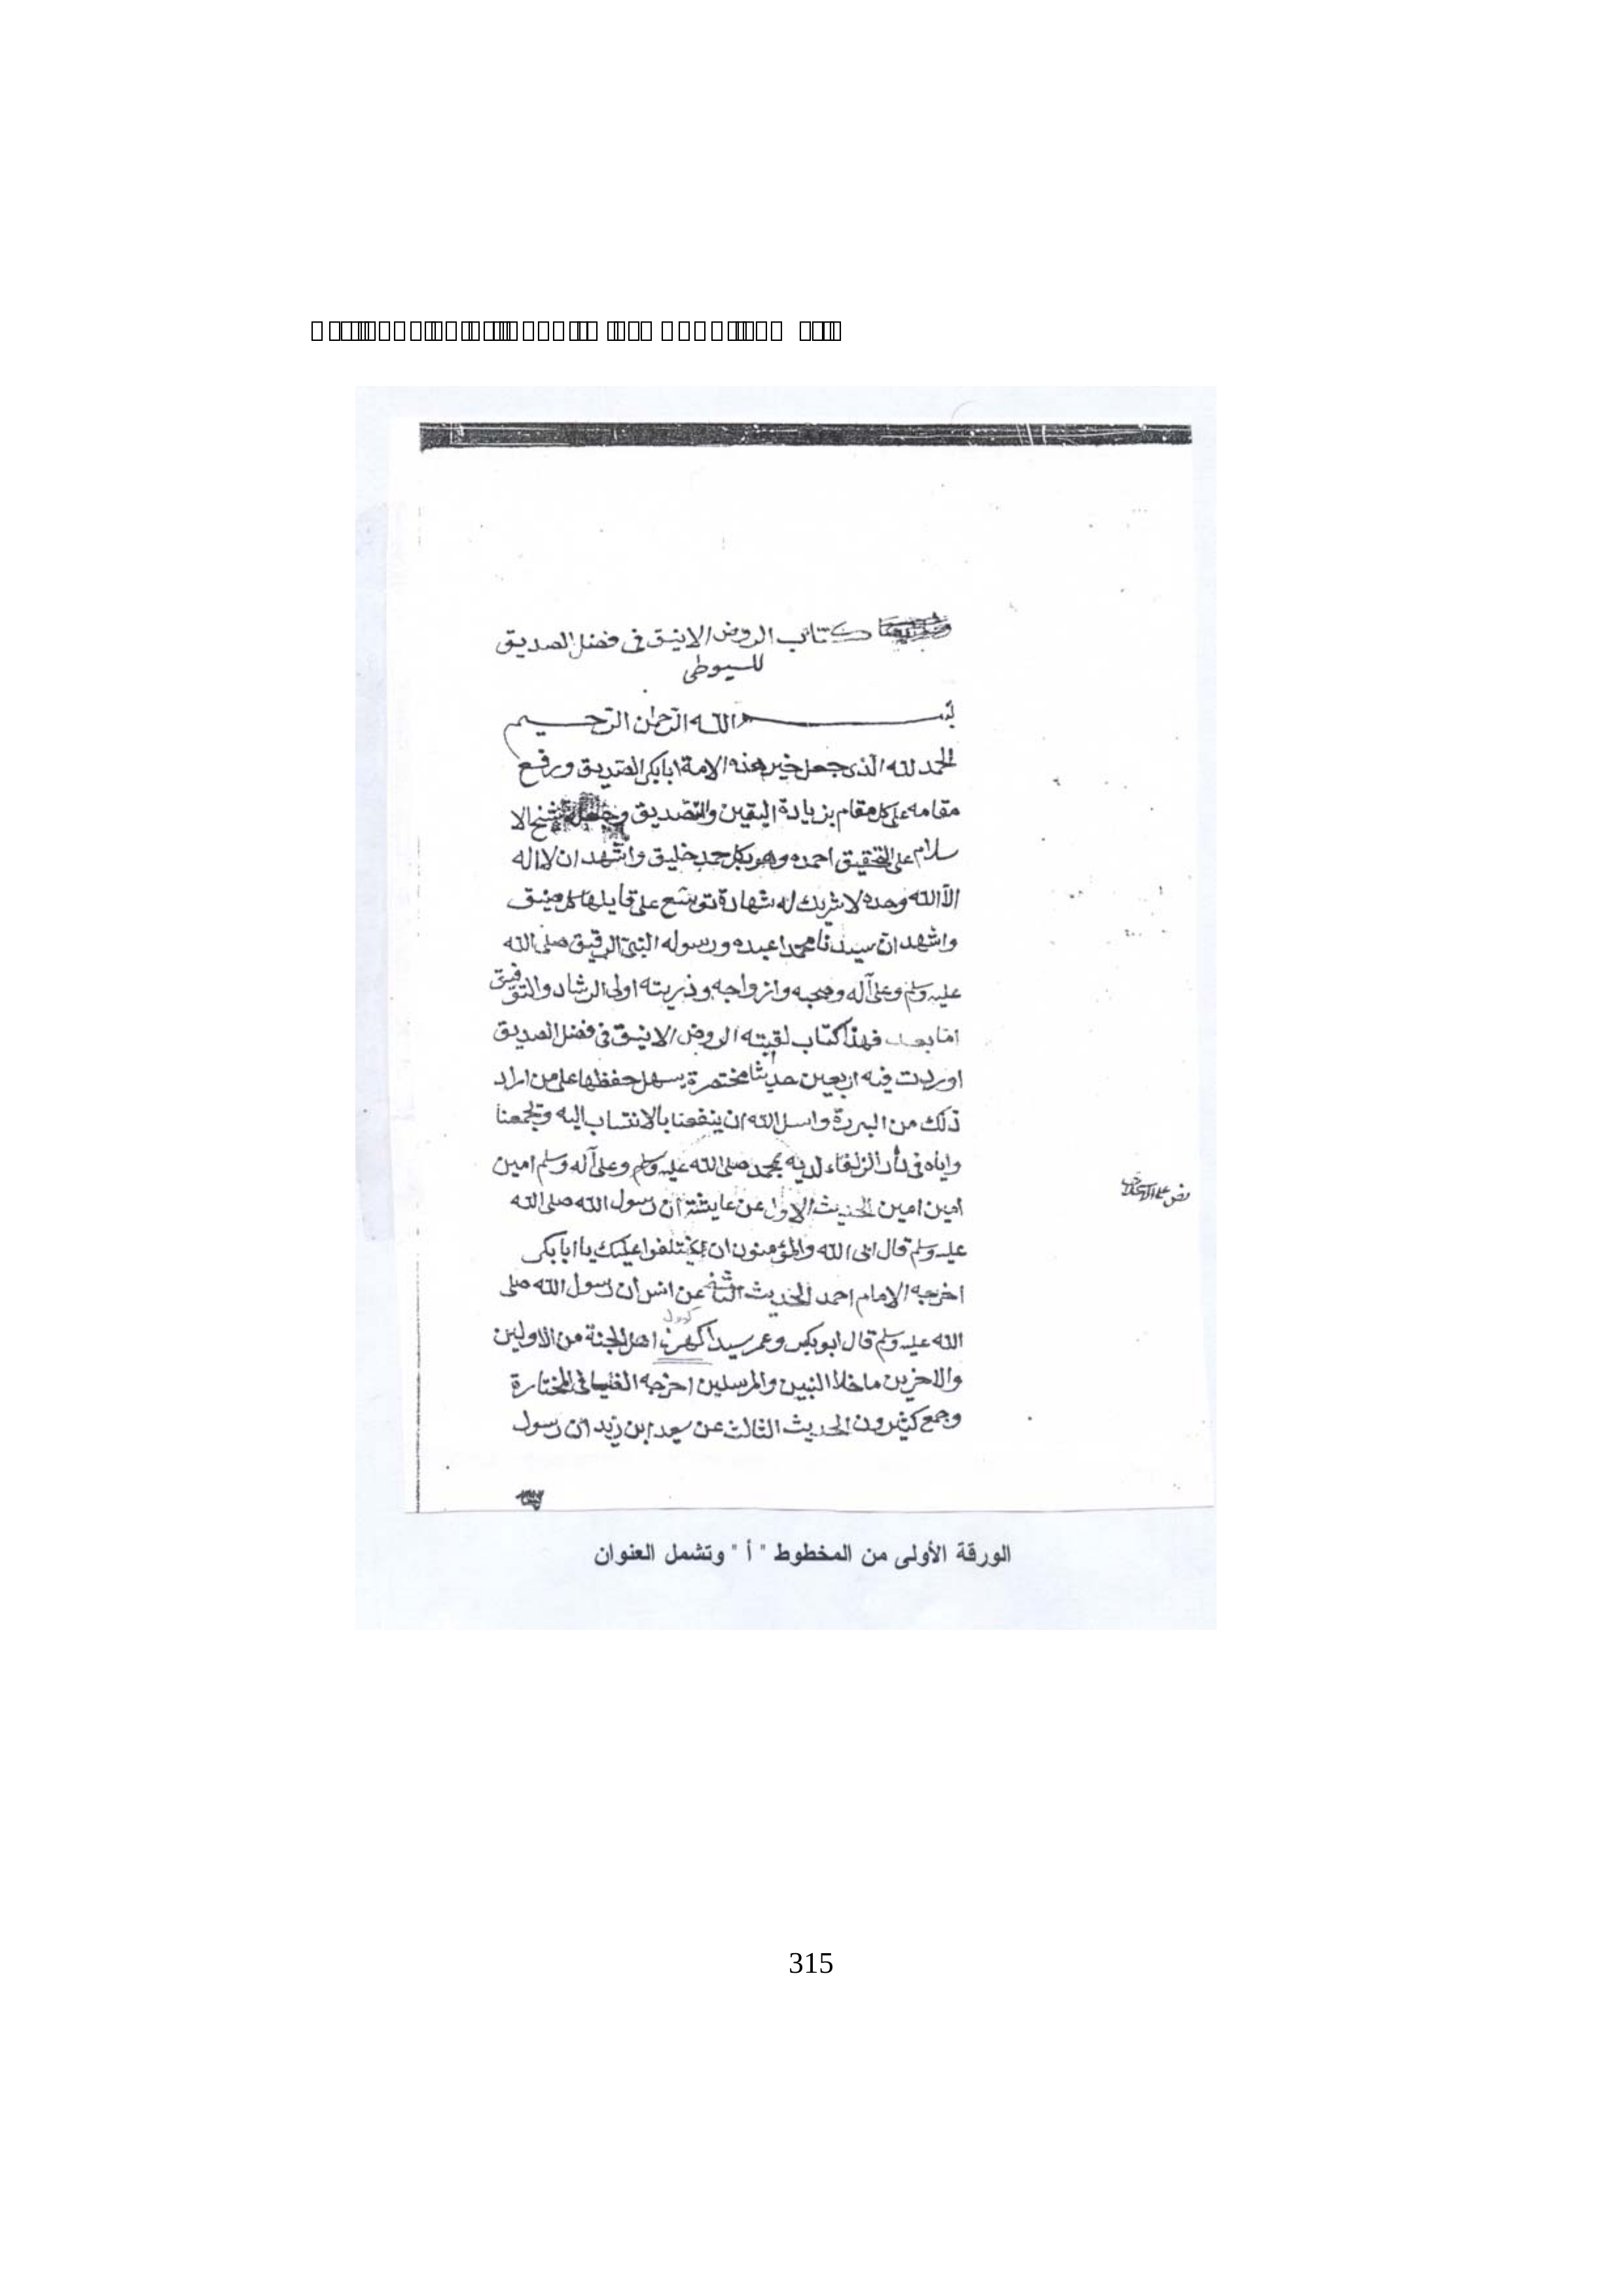 كتاب الروض الانيق فى فضل الصديق
للسيوطى
بسم الله الرحمن الرحيم
الحمد لله الذى جعل خير هذه الامة ابابكر الصديق ورفع
مقامه على كل مقام بزيادة اليقين والتصديق وجعله شيخ الا
سلام على التحقيق احمده وهو بكل حمد خليق واشهد ان لا اله
الا الله وحده لا شريك له شهادة توسع على قايلها كل مضيق
واشهد ان سيدنا محمدا عبده ورسوله النبى الرفيق صلى الله
عليه وسلم وعلى آله وصحبه وازواجه وذريته اولى الرشاد والتوفيق
اما بعد فهذا كتاب لقبته الروض الانيق فى فضل الصديق
اوردت فيه اربعين حديثا مختصرة يسهل حفظها على من اراد
ذلك من البررة واسل الله ان ينفعنا بالانتساب اليه ويجمعنا
واياه فى دار الزلفاء لديه بمحمد صلى الله عليه وسلم وعلى آله وسلم امين
امين امين الحديث الاول عن عايشة ان رسول الله صلى الله
عليه وسلم قال ابى الله والمؤمنون ان يختلفوا عليك يا ابابكر
اخرجه الامام احمد الحديث الثانى عن انس ان رسول الله صلى
كهول
الله عليه وسلم قال ابو بكر وعمر سيدا اهل الجنة من الاولين
والاخرين ما خلا النبين والمرسلين اخرجه الضيا فى المختارة
وجمع كثيرون الحديث الثالث عن سعيد ابن زيد ان رسول
الورقة الأولى من المخطوط " أ " وتشمل العنوان
315